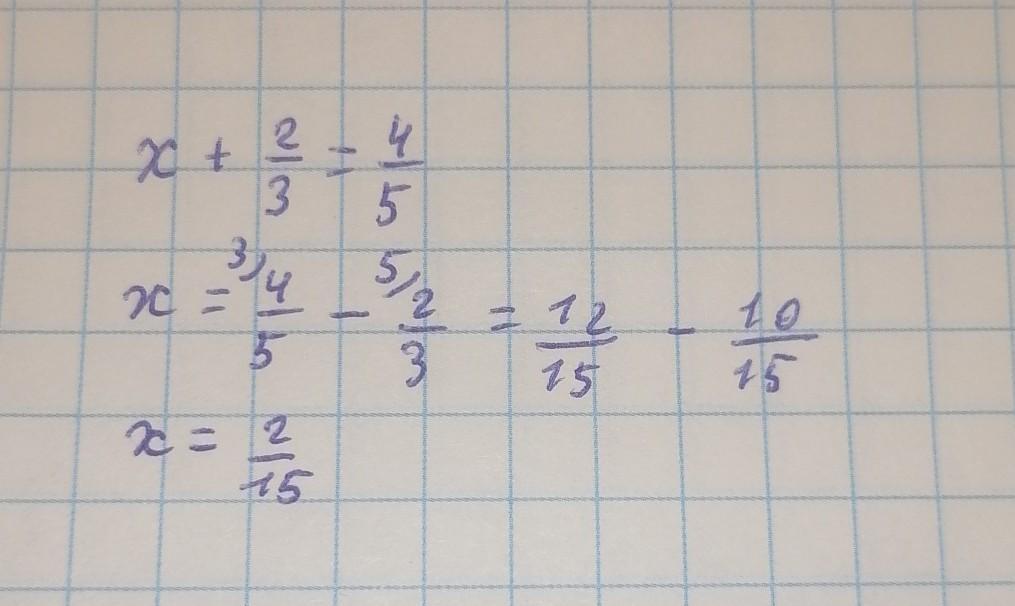 x + 2/3 = 4/5
x = 3) 4/5 - 5) 2/3 = 12/15 - 10/15
x = 2/15